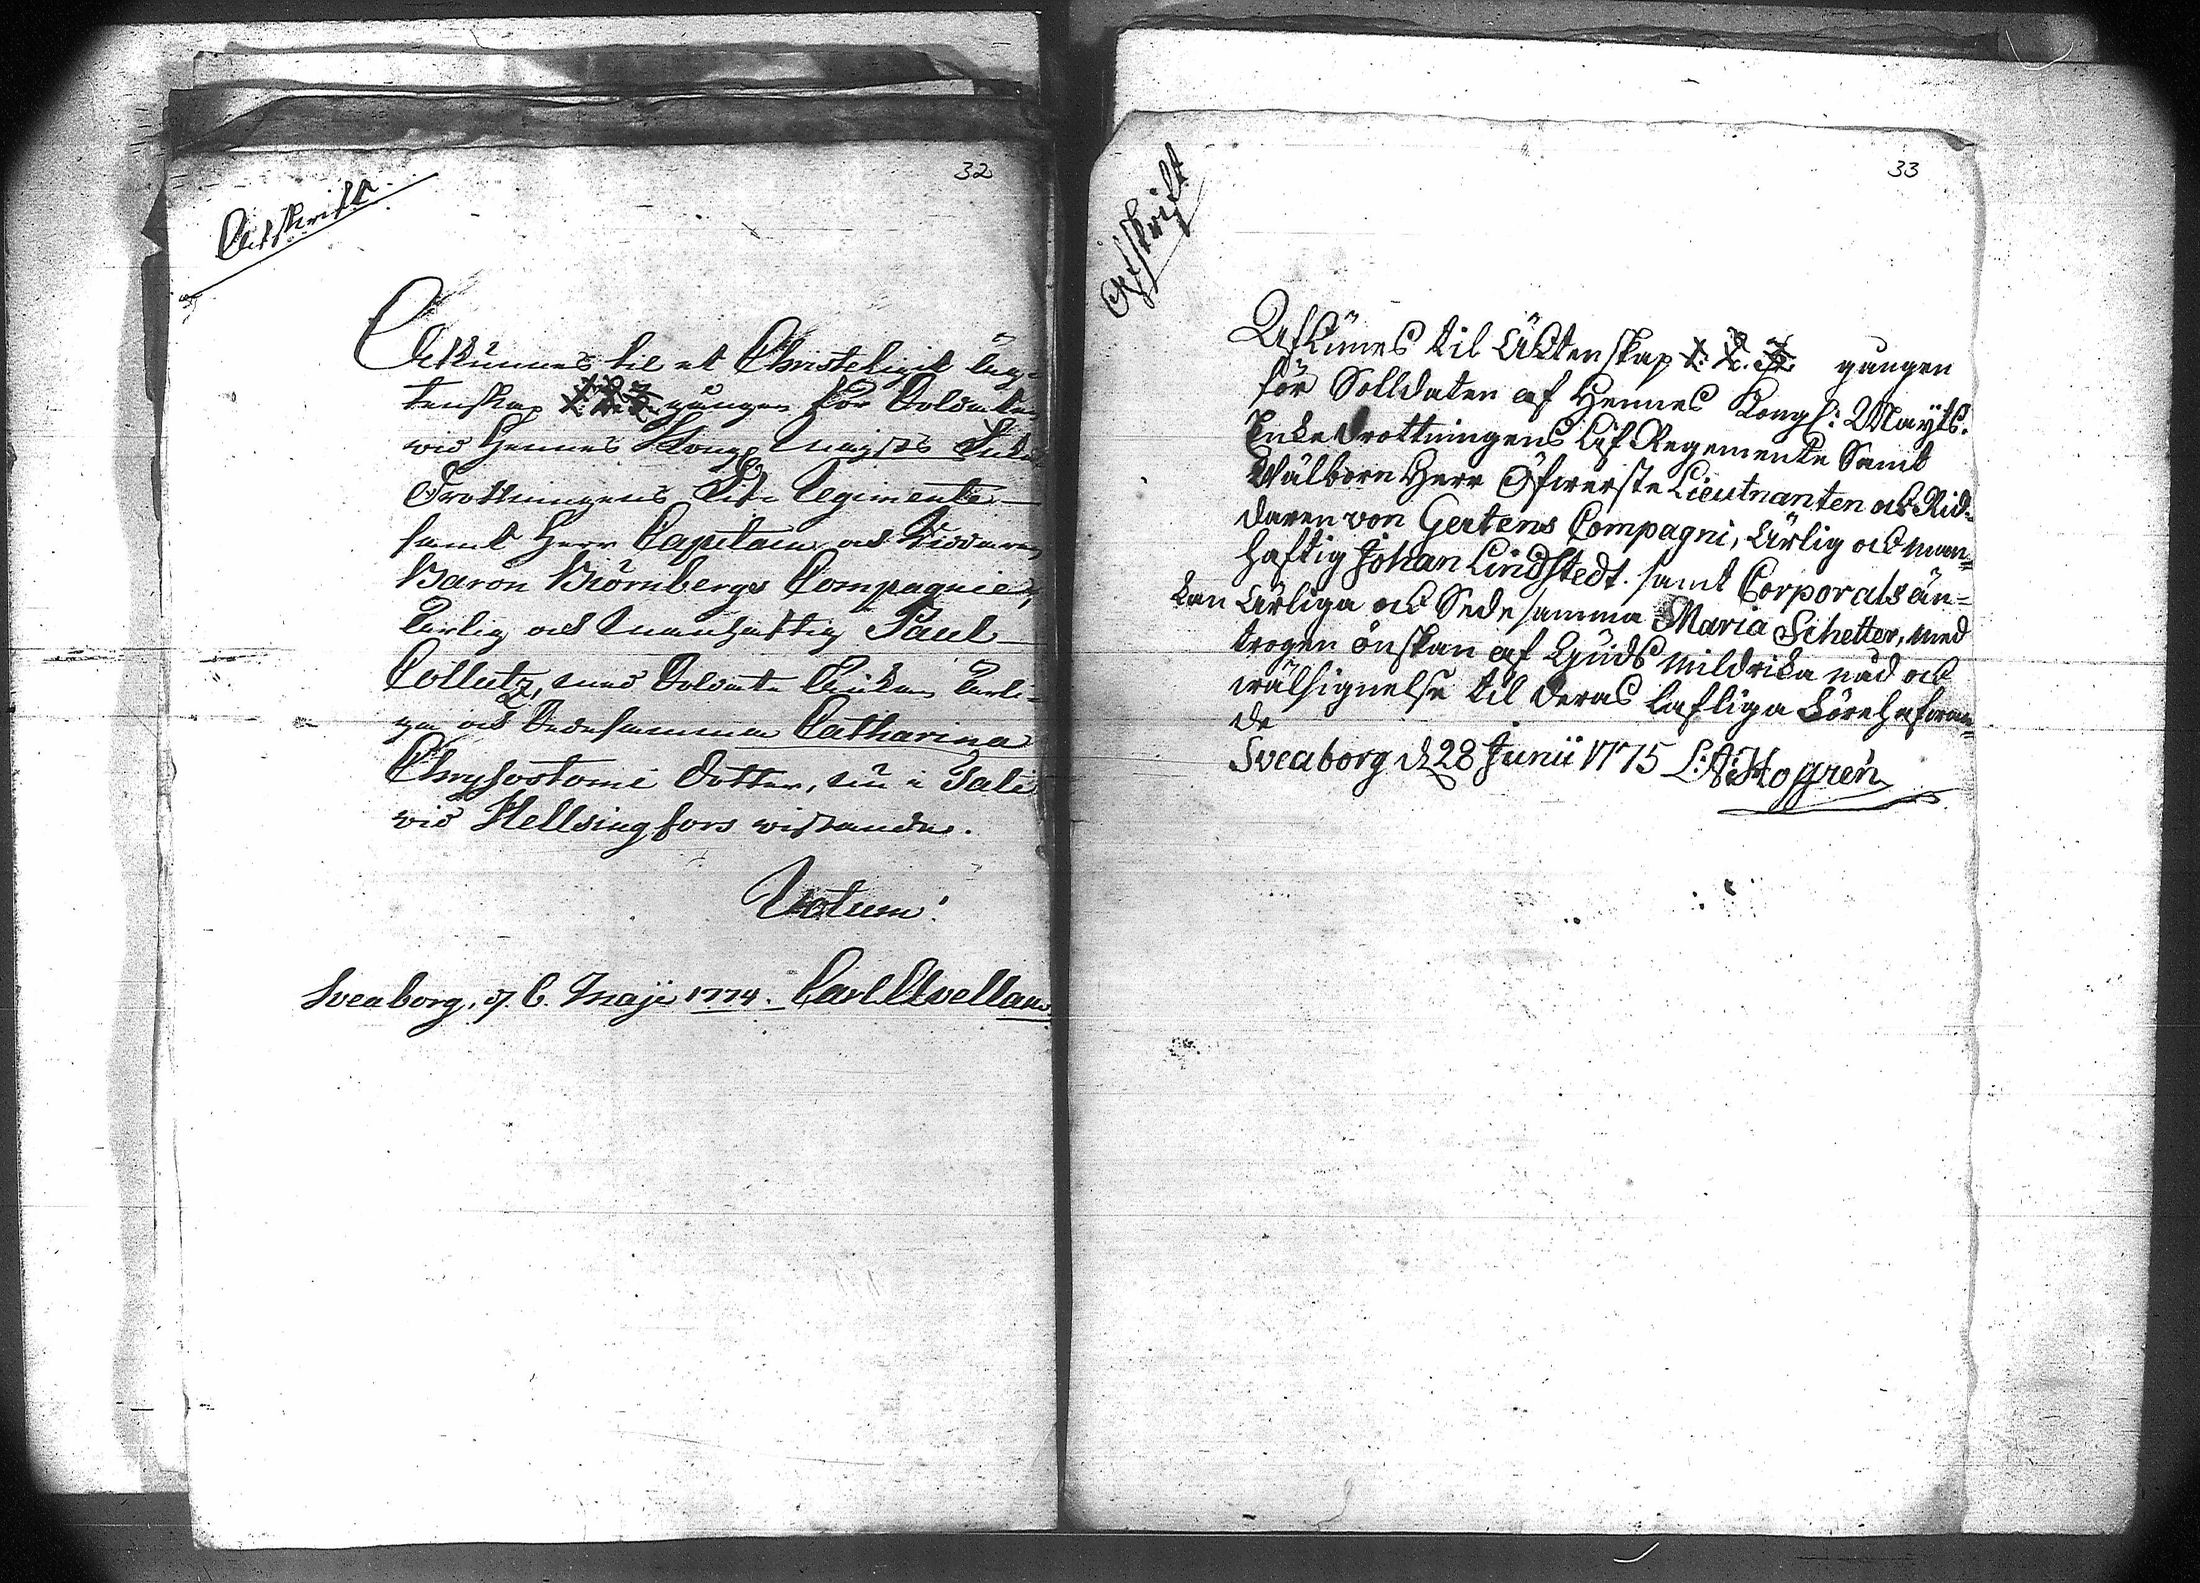 32
Afskrift
Afkunnes til et Christeligit äg-
tenskap 1. 2. 3. gången för Soldaten
wid Hennes Kongl Maj:ts Enke
Drottningens Lif-Regimente
samt Herr Capitain och Riddaren
Baron Björnbergs Compagnie,
Ärlig och Manhaftig Paul
Collutz, med Soldate Enkan Ärli-
ga och Sedesamma Catharina
Chrysostomi Dotter, nu i Tali
wid Hellsingfors wistande.
Votum!
Sveaborg, d. 6. Maji 1774. Carl Avellan
33
Afskrift
Aflünes til Ächtenskap 1. 2. 3. gången
för Solldaten af Hennes Kongl: Mayts.
Enkedrottningens Lif Regemente Samt
Wälborn Herr Öfwerste Lieutnanten och Rid-
daren von Gertens Compagni, Ärlig och man-
haftig Johan Lindstedt. samt Corporals än-
kan Ärliga och Sedesamma Maria Schetter, med
trogen önskan af Guds mildrika nåd och
wälsignelse til deras lofliga Förehafwan-
de
Sveaborg d 28 Junii 1775 L: A: Hofgrén